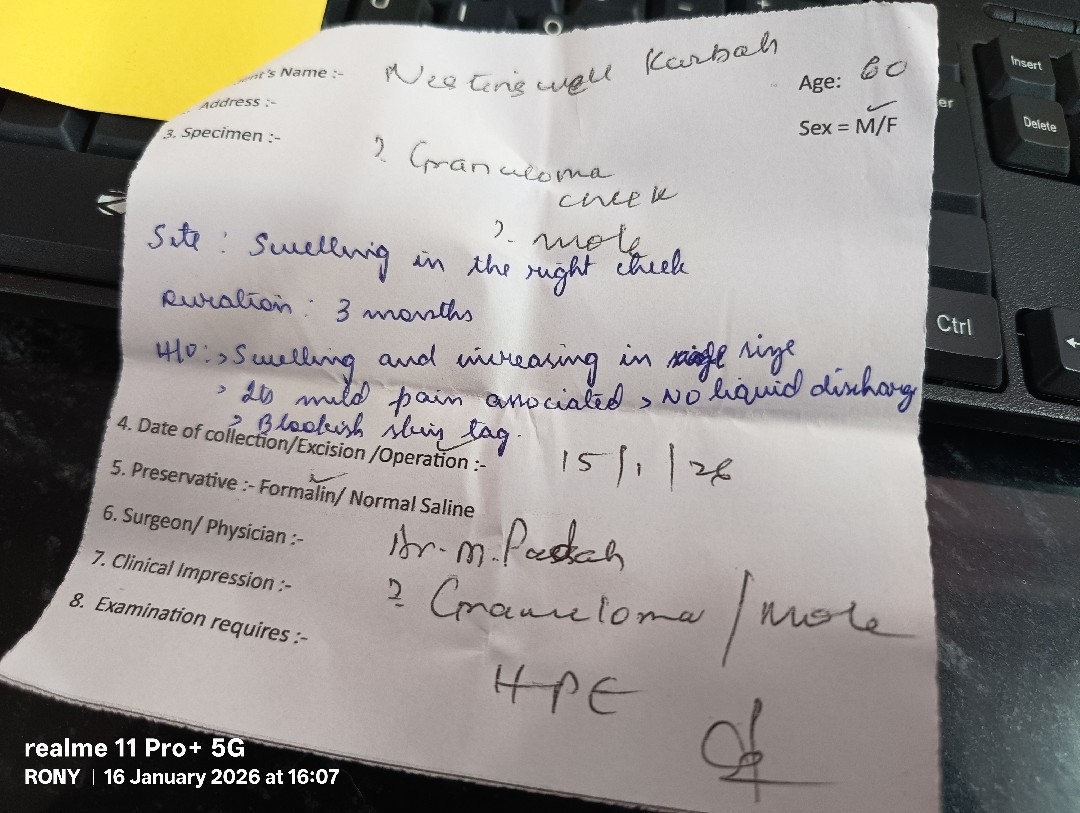 nt's Name :- Karbah Age: 60
Address :-
3. Specimen :- Sex = M/F
? Granuloma
cheek
? mole
Site : Swelling in the right cheek
Duration : 3 months
H/O : > Swelling and increasing in size
> mild pain associated > NO liquid discharg
> Blackish skin tag.
4. Date of collection/Excision /Operation :- 15/1/26
5. Preservative :- Formalin/ Normal Saline
6. Surgeon/ Physician :- Dr. M.
7. Clinical Impression :- ? Granuloma / Mole
8. Examination requires :- HPE
Insert
Delete
er
Ctrl
realme 11 Pro+ 5G
RONY | 16 January 2026 at 16:07